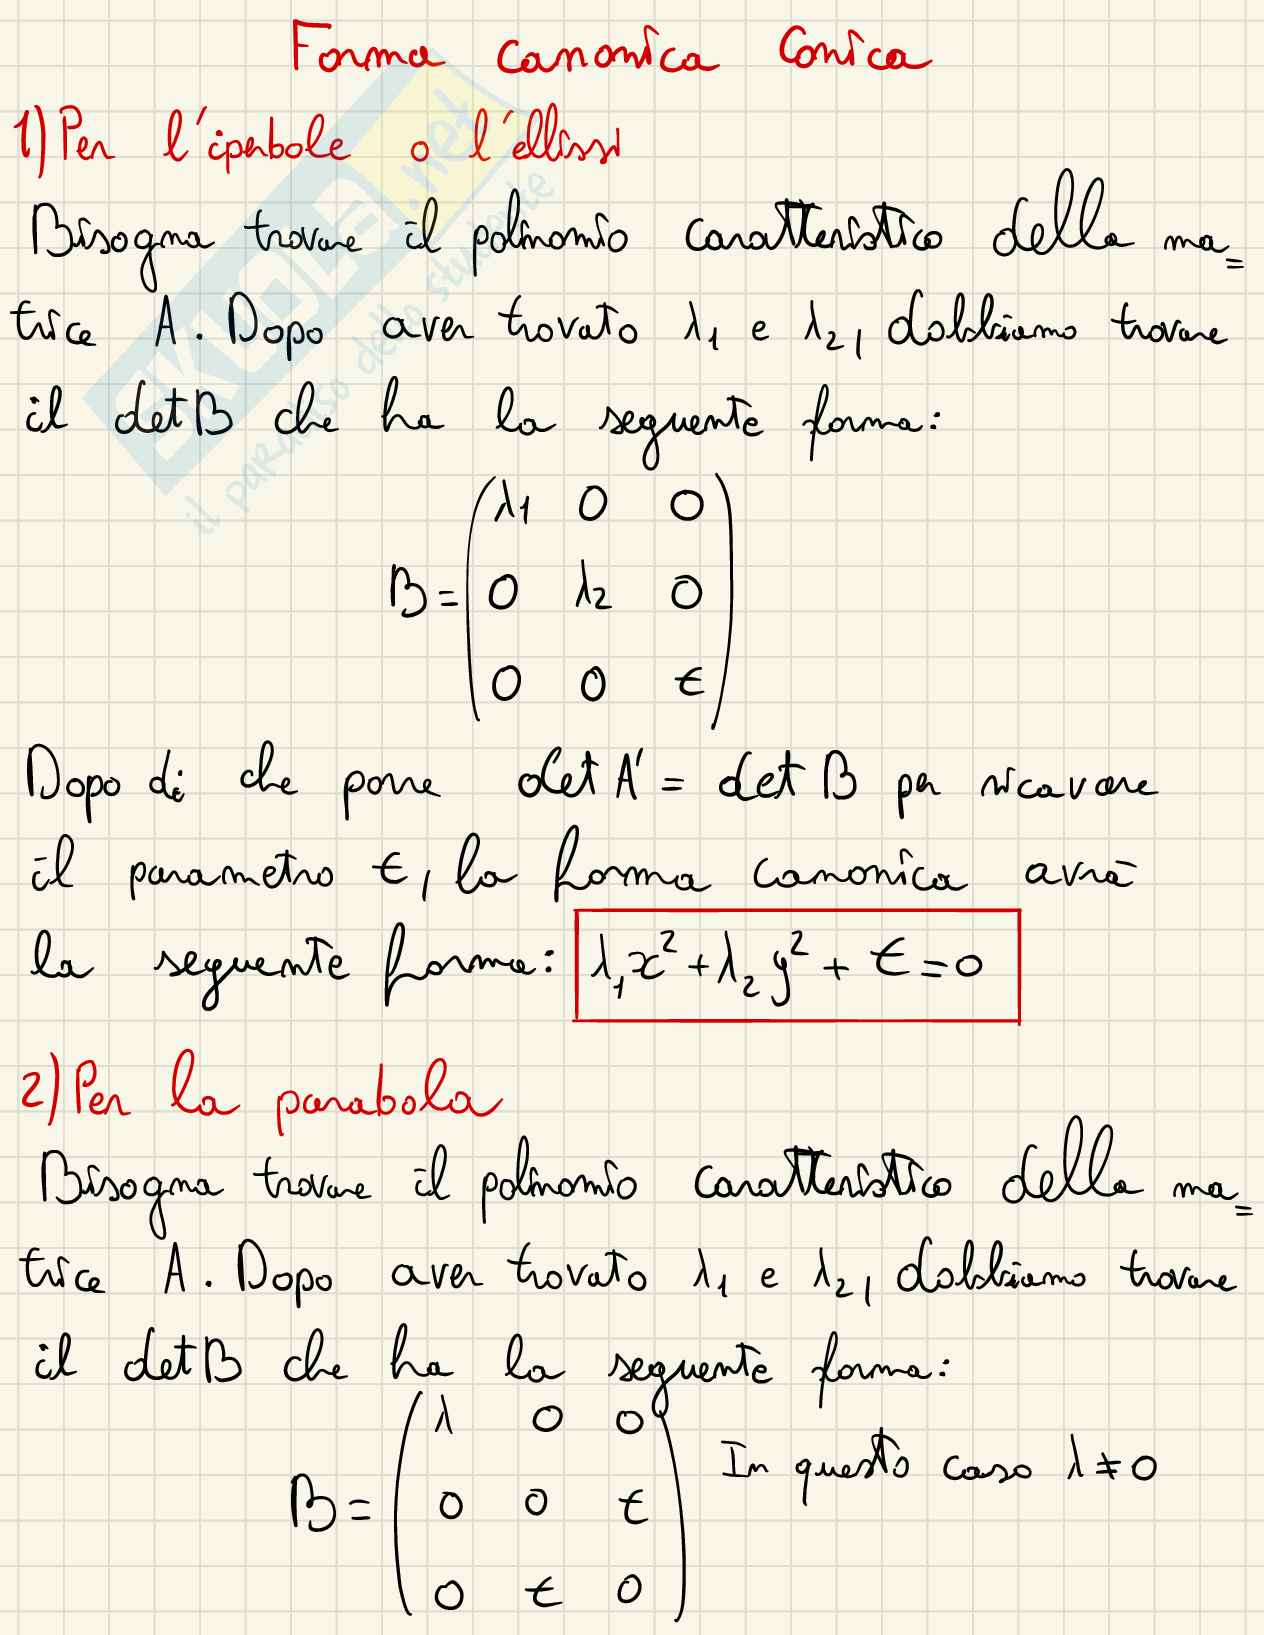 Forma canonica Conica
1) Per l'iperbole o l'ellissi
Bisogna trovare il polinomio caratteristico della ma=
trice A. Dopo aver trovato λ₁ e λ₂, dobbiamo trovare
il det B che ha la seguente forma:
B = (λ1 0 0
0 λ2 0
0 0 t)
Dopo di che pone det A' = det B per ricavare
il parametro t, la forma canonica avrà
la seguente forma: λ₁x² + λ₂y² + t = 0
2) Per la parabola
Bisogna trovare il polinomio caratteristico della ma=
trice A. Dopo aver trovato λ₁ e λ₂, dobbiamo trovare
il det B che ha la seguente forma:
B = (λ 0 0
0 0 t
0 t 0) In questo caso λ ≠ 0
SKUOLA.net
il paradiso dello studente